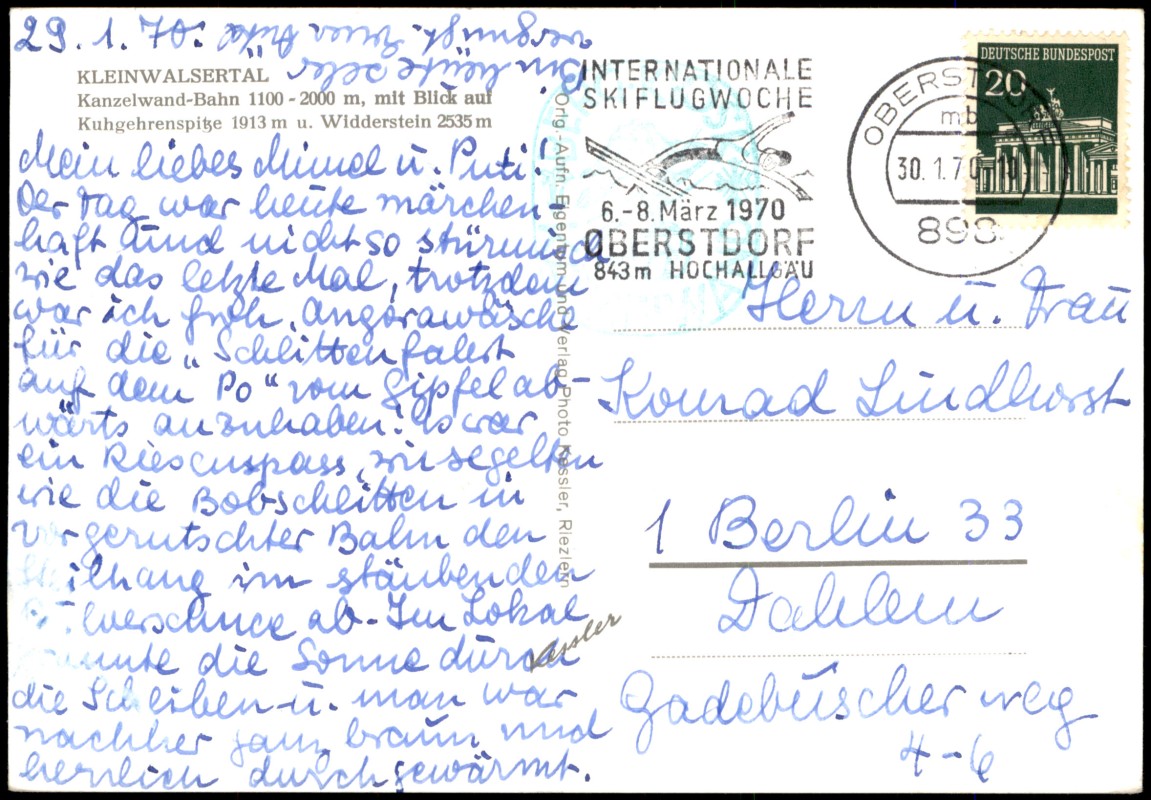 29. 1. 70.
KLEINWALSERTAL
Kanzelwand-Bahn 1100 - 2000 m, mit Blick auf
Kuhgehrenspitze 1913 m u. Widderstein 2535 m
Mein liebes Mimel u. Puti!
Der Tag war heute märchen-
haft und nicht so stürmisch
wie das letzte Mal, trotzdem
war ich froh, Angorawäsche
für die „Schlittenfahrt
auf dem Po“ vom Gipfel ab-
wärts anzuhaben! Es war
ein Riesenspass, wir segelten
wie die Bobschlitten in
vorgerutschter Bahn den
Steilhang im stäubenden
Pulverschnee ab - Im Lokal
brannte die Sonne durch
die Scheiben u. man war
nachher ganz braun und
herrlich durchgewärmt.
Bin heute sehr
vergnügt. Eure
Orig.-Aufn. Eigentum und Verlag Photo Kessler, Riezlern
Kessler
INTERNATIONALE
SKIFLUGWOCHE
6.-8. März 1970
OBERSTDORF
843 m HOCHALLGÄU
OBERSTDORF
mb
30. 1. 70 - 10
898
DEUTSCHE BUNDESPOST
20
Herrn u. Frau
Konrad Lindhorst
1 Berlin 33
Dahlem
Gadebuscher weg
4 - 6